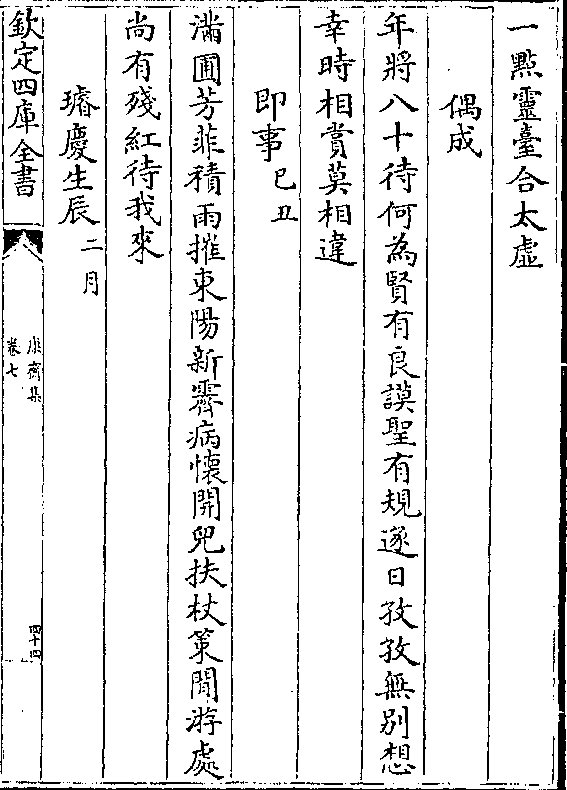 一點靈臺合太虛
偶成
年將八十待何為賢有良謨聖有規逐日孜孜無別想
幸時相賞莫相違
即事己丑
滿圃芳菲積雨摧東陽新霽病懷開兒扶杖策閒游處
尚有殘紅待我來
璿慶生辰二月
欽定四庫全書
康齋集
卷七
四十四